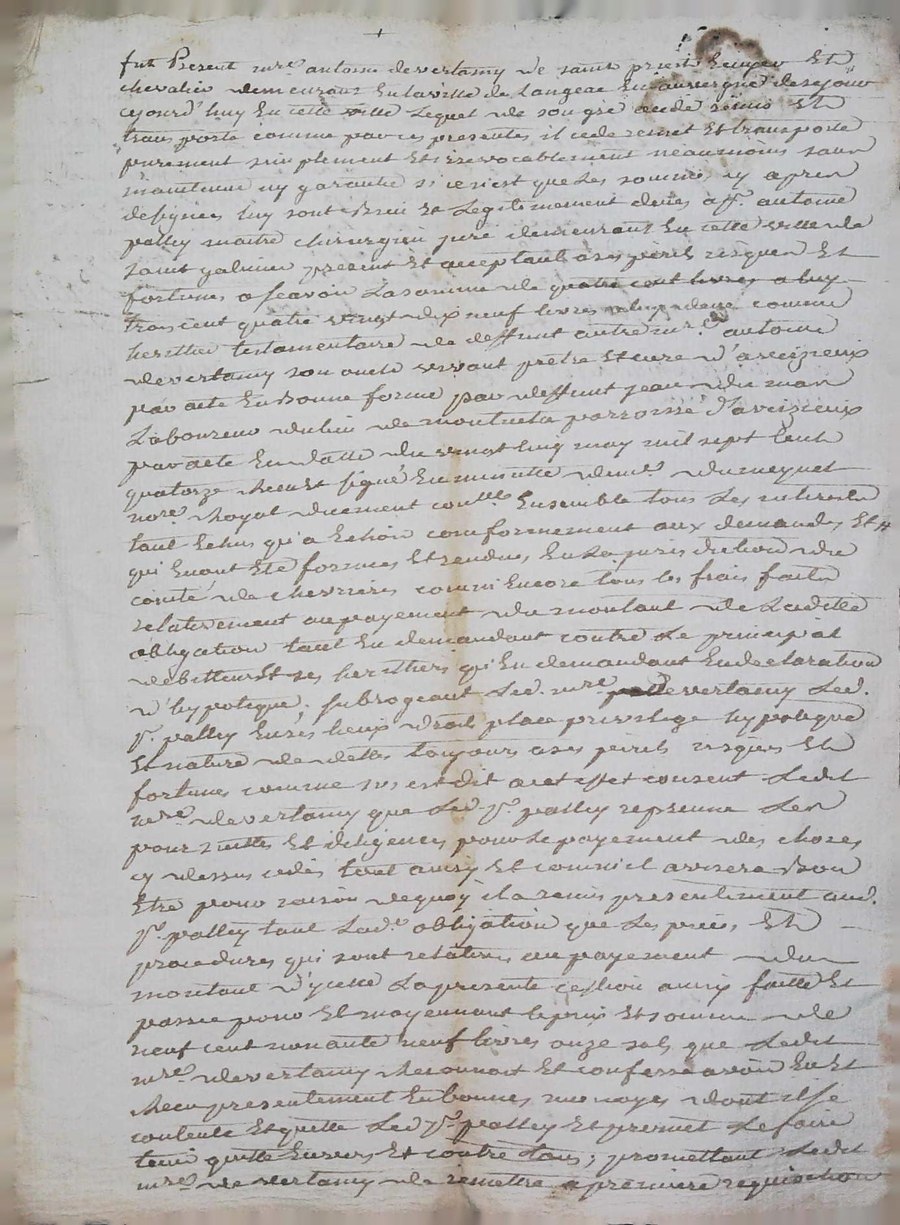 fut Present mre antoine devertamy de saint priest Ecuyer Et
chevalier demeurant En la ville de Langeac En auvergne de sejour
cejourd'huy En cette ville Lequel de son gré a cedé remis Et
transporté comme par ces presentes il cede remet Et transporte
purement simplement Et irrevocablement neaumoins sans
maintenue ny garantie si ce n'est que Les sommes cy apres
designées luy sont Bien Et Legitimement dües à sr. antoine
palley maitre chirurgien juré demeurant En cette ville de
saint galmier present Et acceptant a ses perils risques Et
fortunes a scavoir La somme de quatre cent livres a luy
trois cent quatre vingt dix neuf livres a luy deue comme
heritier testamentaire de deffunt autre mre antoine
devertamy son oncle vivant prêtre Et curé d'aveizieux
par acte En bonne forme par deffunt jean du mas
Laboureur du lieu de parroisse d'aveizieux
par acte En datte du vingt huit may mil sept cent
quatorze Receu Et signé En minutte de me dumeynet
nore Royal duement conllé Ensemble tous Les interests
tant Echus qu'a Echoir conformement aux demandes Et #
qui En ont Eté formées Et rendues En La jurisdiction du
comté de chevrieres comm'Encore tous les frais faits
relativement au payement du montant de Ladite
obligation tant En demandant contre Le principal
debitteur Et ses heritiers qu'En demandant En declaration
d'hypoteque. subrogeant Led. mre devertamy Led.
sr. palley En ses lieux droit place privilege hypoteque
Et nature de dettes toujours a ses perils risques Et
fortunes comme est dit a cet effet consent Ledit
mre devertamy que Led. sr. palley reprenne Les
poursuittes Et diligences pour Le payement des choses
cy dessus cedés tout ainsy Et comm'il avisera Bon
Etre pour raison dequoy il a remis presentement aud.
sr. palley tant Lade obligation que Les pieces Et
procedures qui sont relatives au payement du
montant d'ycelle La presente cession ainsy faitte Et
passée pour Et moyennant le prix Et somme de
neuf cent nonante neuf livres onze sols que Ledit
mre devertamy Reconnoit Et confesse avoir Eu Et
Receu presentement En bonnes monoyes dont il se
contente Et quitte Led. sr. palley Et promet Le faire
tenir quitte Envers Et contre tous; promettant Ledit
mre devertamy de remettre a premiere requisition